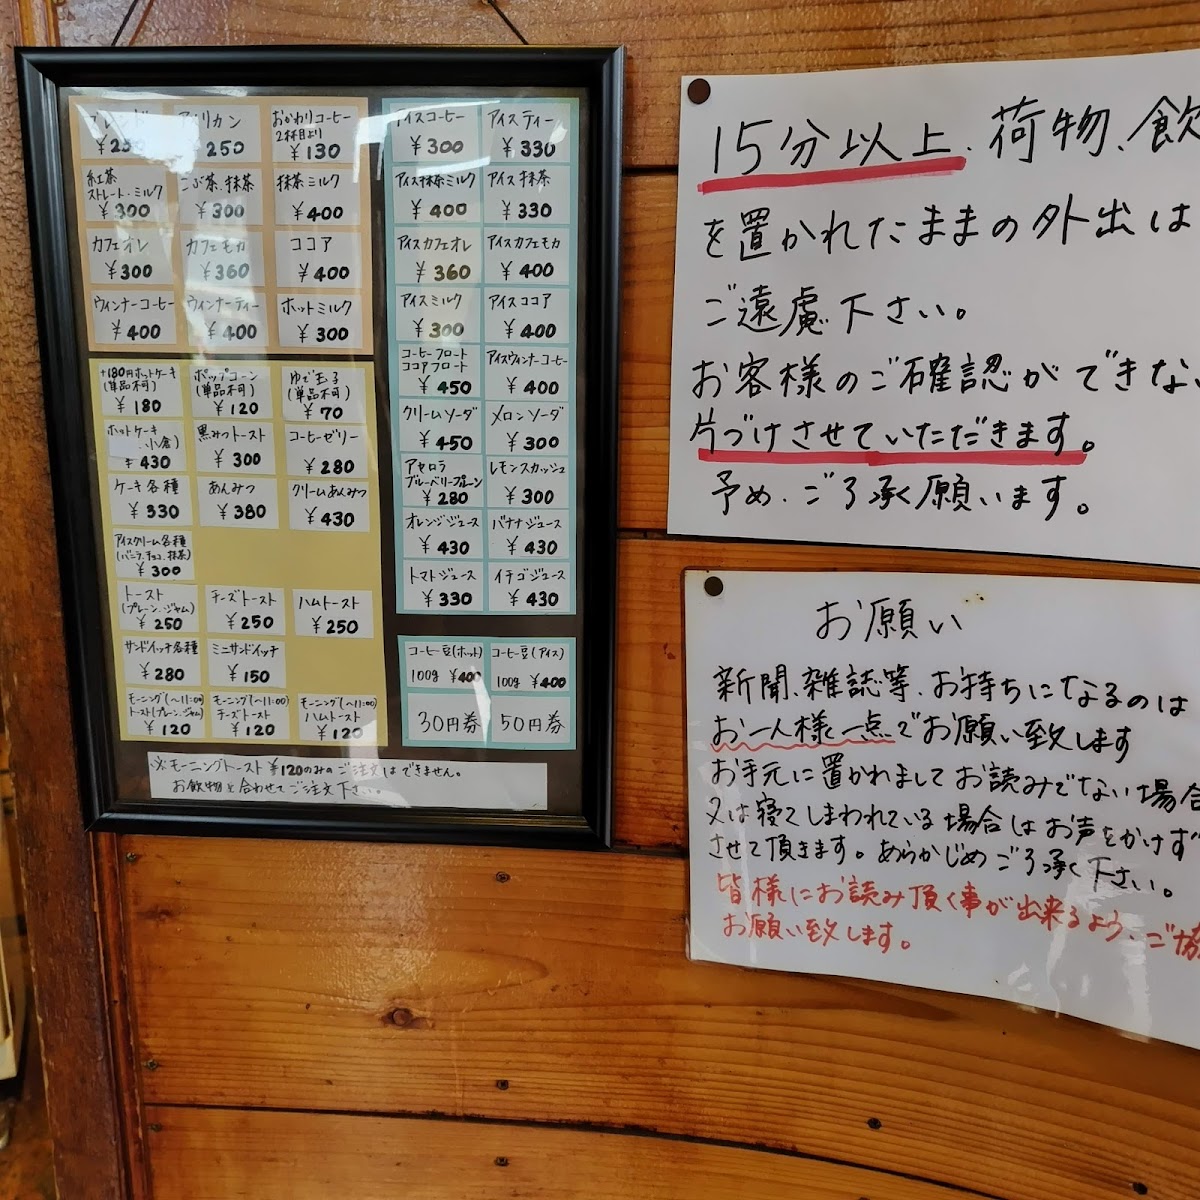 ブレンド
¥250
アメリカン
¥250
おかわりコーヒー
2杯目より
¥130
紅茶
ストレート・ミルク
¥300
こぶ茶、抹茶
¥300
抹茶ミルク
¥400
カフェオレ
¥300
カフェモカ
¥360
ココア
¥400
ウィンナーコーヒー
¥400
ウィンナーティー
¥400
ホットミルク
¥300
+180円ホットケーキ
(単品不可)
¥180
ポップコーン
(単品不可)
¥120
ゆで玉子
(単品不可)
¥70
ホットケーキ
小倉)
¥430
黒みつトースト
¥300
コーヒーゼリー
¥280
ケーキ各種
¥330
あんみつ
¥380
クリームあんみつ
¥430
アイスクリーム各種
(バニラ、チョコ、抹茶)
¥300
トースト
(プレーン、ジャム)
¥250
チーズトースト
¥250
ハムトースト
¥250
サンドイッチ各種
¥280
ミニサンドイッチ
¥150
モーニング(~11:00)
トースト(プレーン、ジャム)
¥120
モーニング(~11:00)
チーズトースト
¥120
モーニング(~11:00)
ハムトースト
¥120
アイスコーヒー
¥300
アイスティー
¥330
アイス抹茶ミルク
¥400
アイス抹茶
¥330
アイスカフェオレ
¥360
アイスカフェモカ
¥400
アイスミルク
¥300
アイスココア
¥400
コーヒーフロート
ココアフロート
¥450
アイスウィンナーコーヒー
¥400
クリームソーダ
¥450
メロンソーダ
¥300
アセロラ
ブルーベリープルーン
¥280
レモンスカッシュ
¥300
オレンジジュース
¥430
バナナジュース
¥430
トマトジュース
¥330
イチゴジュース
¥430
コーヒー豆(ホット)
100g ¥400
コーヒー豆(アイス)
100g ¥400
30円券
50円券
※モーニングトースト¥120のみのご注文はできません。
お飲物と合わせてご注文下さい。
15分以上、荷物、飲
を置かれたままの外出は
ご遠慮下さい。
お客様のご確認ができな
片づけさせていただきます。
予め、ご了承く願います。
お願い
新聞、雑誌等、お持ちになるのは
お一人様一点でお願い致します
お手元に置かれましてお読みでない場合
又は寝てしまわれている場合はお声をかけず
させて頂きます。あらかじめご了承く下さい。
皆様にお読み頂く事が出来るよう、ご協
お願い致します。